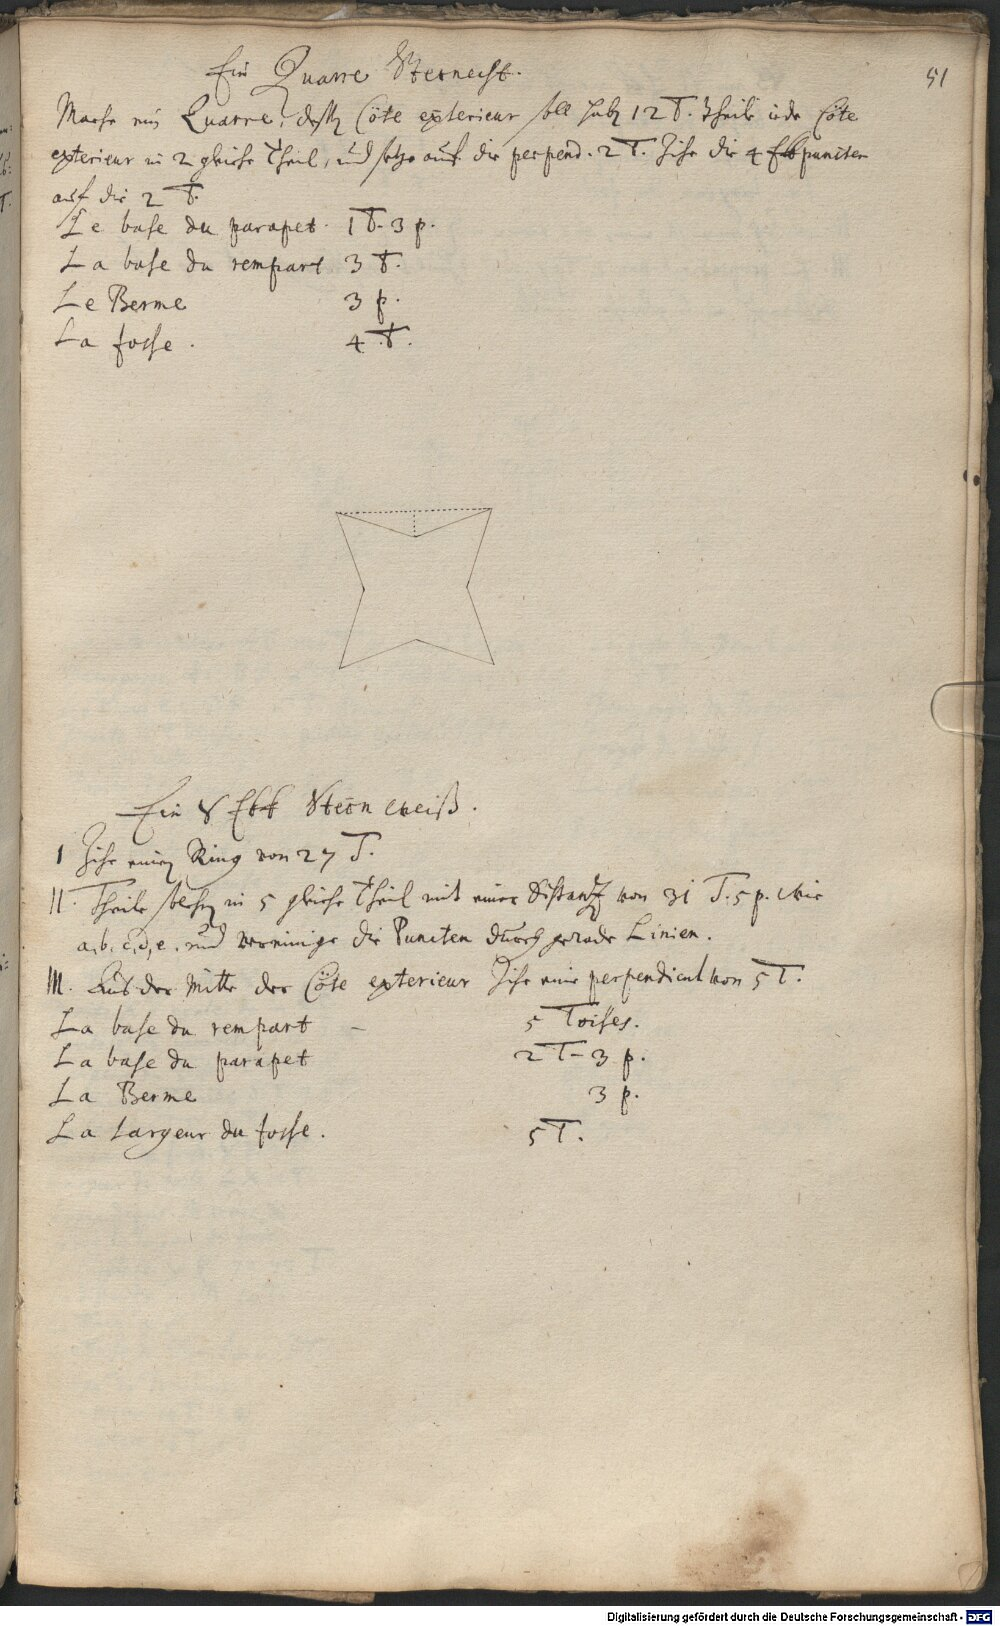 51
Ein Quarre Sternecht.
Mache ein Quarre, dessen Côte exterieur soll haben 12 T. Theile iede Côte
exterieur in 2 gleiche Theil, und setze auf die perpend. 2 T. Zihe die 4 Ekpuncten
auf die 2 T.
Le base du parapet. 1 T. 3 p.
La base du rempart 3 T.
Le Berme 3 p.
La fosse. 4 T.
Ein Ekk Stern weiß.
I Zihe einen Ring von 27 T.
II. Theile solchen in 5 gleiche Theil mit einer Distantz von 31 T. 5 p. wie
a, b, c, d, e. und vereinige die Puncten durch gerade Linien.
III. Aus der Mitte der Côte exterieur Zihe eine perpendicul von 5 T.
La base du rempart – 5 Toises.
La base du parapet 2 T – 3 p.
La Berme 3 p.
La largeur du fosse. 5 T.
Digitalisierung gefördert durch die Deutsche Forschungsgemeinschaft - DFG